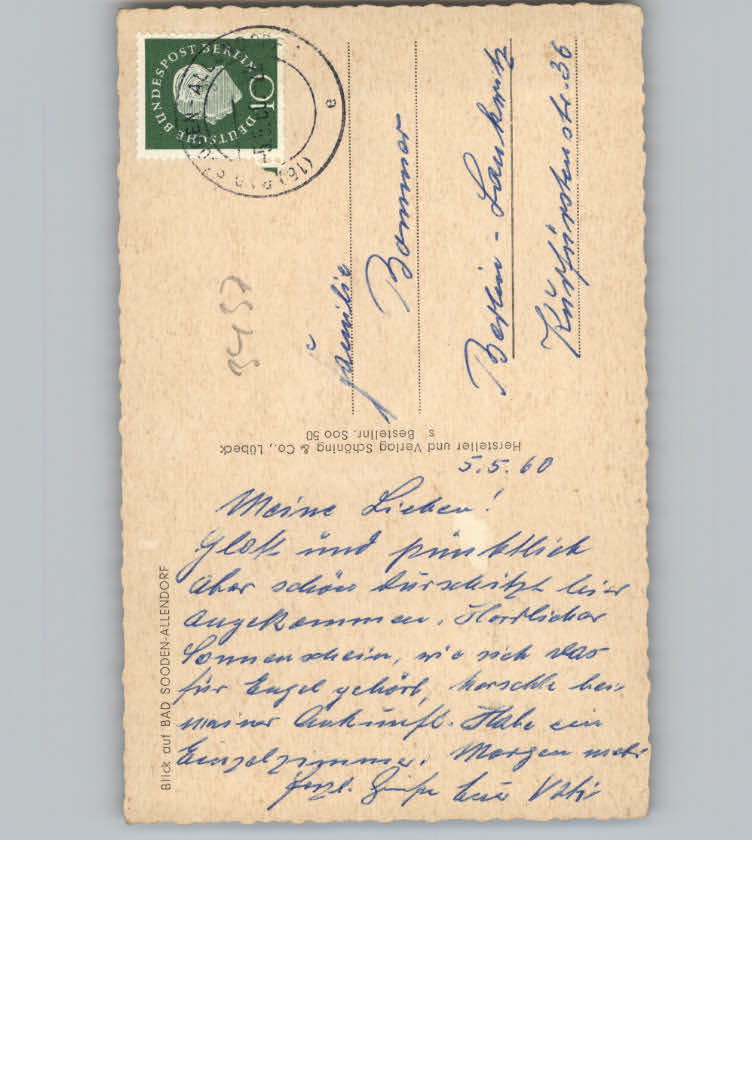 5.5.60
Meine Lieben!
Glatt und pünktlich
aber schön durschwitzt hier
angekommen. Herrlicher
Sonnenschein, wie sich das
für Engel gehört, herrschte bei
meiner Ankunft. Habe ein
Einzelzimmer. Morgen mehr
Herzl. Grüße Euer Vati
Familie
Bommer
Berlin - Lankwitz
Kürfürstenstr. 36
Blick auf BAD SOODEN-ALLENDORF
Hersteller und Verlag Schöning & Co., Lübeck
s Bestellnr. Soo 50
DEUTSCHE BUNDESPOST BERLIN
10
(16)
e